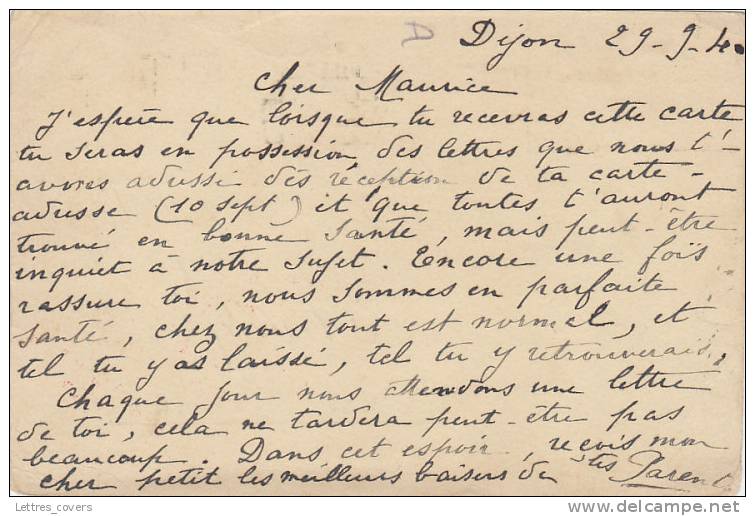 A
Dijon 29-9-40
Cher Maurice
J'espère que lorsque tu recevras cette carte
tu seras en possession, des lettres que nous t'-
avons adressé dès réception de ta carte-
adresse (10 sept) et que toutes t'auront
trouvé en bonne santé, mais peut-être
inquiet à notre sujet. Encore une fois
rassure toi, nous sommes en parfaite
santé, chez nous tout est normal, et
tel tu y as laissé, tel tu y retrouverais.
Chaque jour nous attendons une lettre
de toi, cela ne tardera peut-être pas
beaucoup. Dans cet espoir, reçois mon
cher petit les meilleurs baisers de tes Parents
Lettres_covers
www.delcampe.net